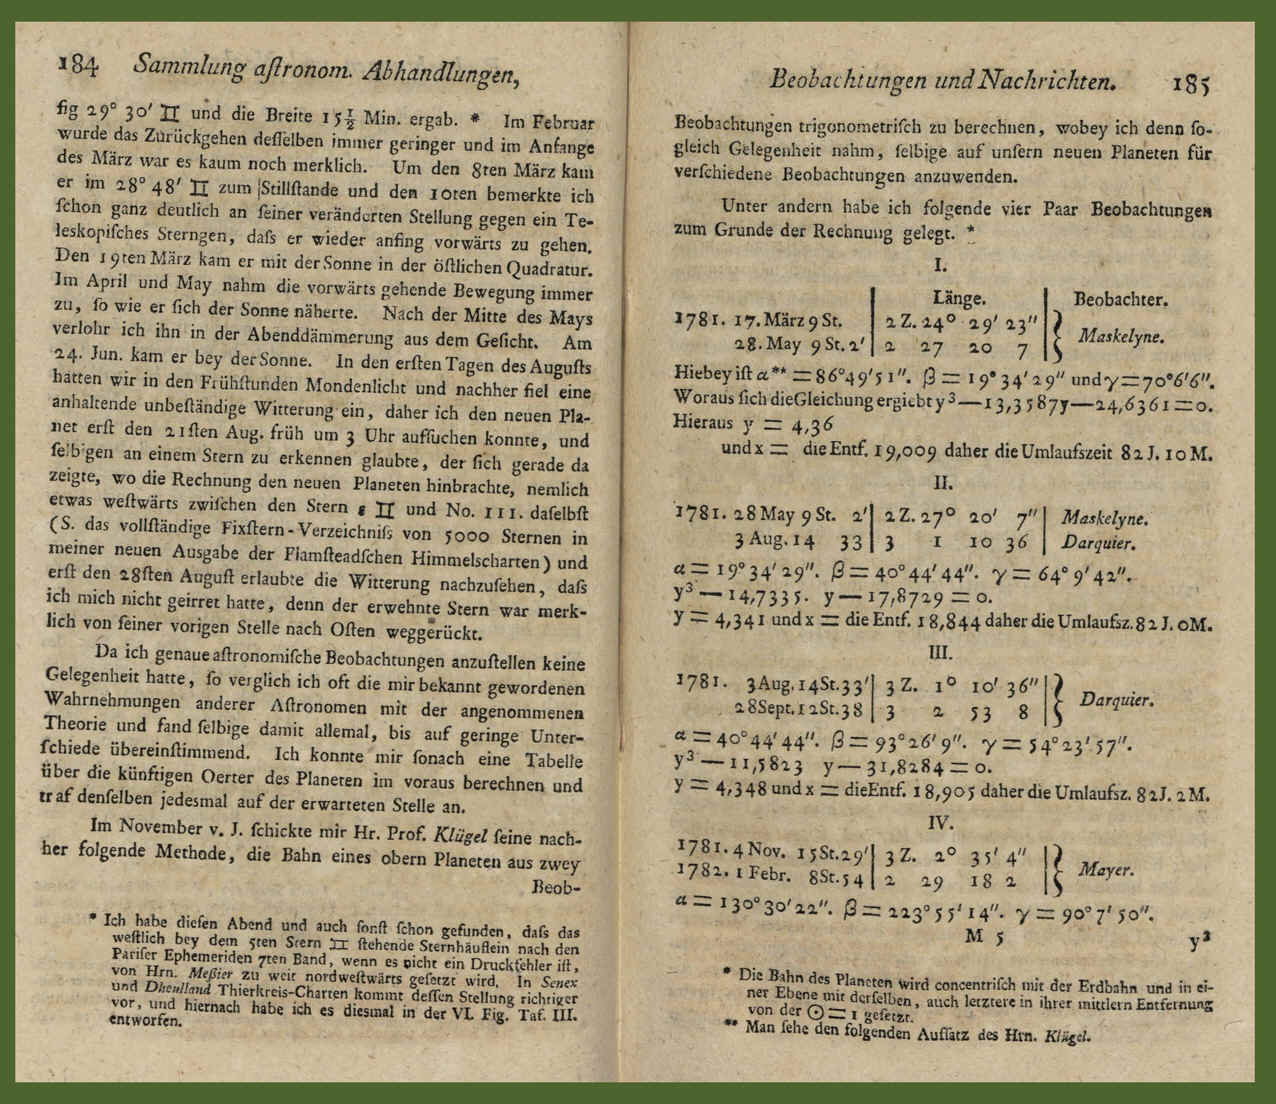 184 Sammlung aſtronom. Abhandlungen,
fig 29° 30′ ♊ und die Breite 15½ Min. ergab. * Im Februar
wurde das Zurückgehen deſſelben immer geringer und im Anfange
des März war es kaum noch merklich. Um den 8ten März kam
er im 28° 48′ ♊ zum Stillſtande und den 10ten bemerkte ich
ſchon ganz deutlich an ſeiner veränderten Stellung gegen ein Te-
leskopiſches Sterngen, daſs er wieder anfing vorwärts zu gehen.
Den 19ten März kam er mit der Sonne in der öſtlichen Quadratur.
Im April und May nahm die vorwärts gehende Bewegung immer
zu, ſo wie er ſich der Sonne näherte. Nach der Mitte des Mays
verlohr ich ihn in der Abenddämmerung aus dem Geſicht. Am
24. Jun. kam er bey der Sonne. In den erſten Tagen des Auguſts
hatten wir in den Frühſtunden Mondenlicht und nachher fiel eine
anhaltende unbeſtändige Witterung ein, daher ich den neuen Pla-
net erſt den 21ſten Aug. früh um 3 Uhr aufſuchen konnte, und
ſelbigen an einem Stern zu erkennen glaubte, der ſich gerade da
zeigte, wo die Rechnung den neuen Planeten hinbrachte, nemlich
etwas weſtwärts zwiſchen den Stern ε ♊ und No. 111. daſelbſt
(S. das vollſtändige Fixſtern-Verzeichniſs von 5000 Sternen in
meiner neuen Ausgabe der Flamſteadſchen Himmelscharten) und
erſt den 28ſten Auguſt erlaubte die Witterung nachzuſehen, daſs
ich mich nicht geirret hatte, denn der erwehnte Stern war merk-
lich von ſeiner vorigen Stelle nach Oſten weggerückt.
Da ich genaue aſtronomiſche Beobachtungen anzuſtellen keine
Gelegenheit hatte, ſo verglich ich oft die mir bekannt gewordenen
Wahrnehmungen anderer Aſtronomen mit der angenommenen
Theorie und fand ſelbige damit allemal, bis auf geringe Unter-
ſchiede übereinſtimmend. Ich konnte mir ſonach eine Tabelle
über die künftigen Oerter des Planeten im voraus berechnen und
traf denſelben jedesmal auf der erwarteten Stelle an.
Im November v. J. ſchickte mir Hr. Prof. Klügel ſeine nach-
her folgende Methode, die Bahn eines obern Planeten aus zwey
Beob-
* Ich habe dieſen Abend und auch ſonſt ſchon gefunden, daſs das
weſtlich bey dem 5ten Stern ♊ ſtehende Sternhäuflein nach den
Pariſer Ephemeriden 7ten Band, wenn es nicht ein Druckfehler iſt,
von Hrn. Meſſier zu weit nordweſtwärts geſetzt wird. In Senex
und Dheulland Thierkreis-Charten kommt deſſen Stellung richtiger
vor, und hiernach habe ich es diesmal in der VI. Fig. Taf. III.
entworfen.
Beobachtungen und Nachrichten. 185
Beobachtungen trigonometriſch zu berechnen, wobey ich denn ſo-
gleich Gelegenheit nahm, ſelbige auf unſern neuen Planeten für
verſchiedene Beobachtungen anzuwenden.
Unter andern habe ich folgende vier Paar Beobachtungen
zum Grunde der Rechnung gelegt. *
I.
Länge. Beobachter.
1781. 17. März 9 St. 2 Z. 24° 29′ 23″
28. May 9 St. 2′ 2 27 20 7 } Maskelyne.
Hiebey iſt α** = 86°49′51″. β = 19°34′29″ und γ = 70°6′6″.
Woraus ſich die Gleichung ergiebt y³ — 13,3587y — 24,6361 = 0.
Hieraus y = 4,36
und x = die Entf. 19,009 daher die Umlaufszeit 82 J. 10 M.
II.
1781. 28 May 9 St. 2′ 2 Z. 27° 20′ 7″ Maskelyne.
3 Aug. 14 33 3 1 10 36 Darquier.
α = 19°34′29″. β = 40°44′44″. γ = 64°9′42″.
y³ — 14,7335. y — 17,8729 = 0.
y = 4,341 und x = die Entf. 18,844 daher die Umlaufsz. 82 J. 0M.
III.
1781. 3 Aug. 14St. 33′ 3 Z. 1° 10′ 36″
28Sept. 12St. 38 3 2 53 8 } Darquier.
α = 40°44′44″. β = 93°26′9″. γ = 54°23′57″.
y³ — 11,5823 y — 31,8284 = 0.
y = 4,348 und x = die Entf. 18,905 daher die Umlaufsz. 82J. 2M.
IV.
1781. 4 Nov. 15St. 29′ 3 Z. 2° 35′ 4″
1782. 1 Febr. 8St. 54 2 29 18 2 } Mayer.
α = 130°30′22″. β = 223°55′14″. γ = 90°7′50″.
M 5 y³
* Die Bahn des Planeten wird concentriſch mit der Erdbahn und in ei-
ner Ebene mit derſelben, auch letztere in ihrer mittlern Entfernung
von der ☉ = 1 geſetzt.
** Man ſehe den folgenden Aufſatz des Hrn. Klügel.